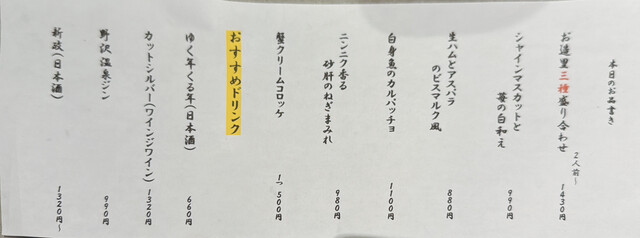 本日のお品書き
お造里三種盛り合わせ
2人前〜
1430円
シャインマスカットと
苺の白和え
990円
生ハムとアスパラ
のビスマルク風
880円
白身魚のカルパッチョ
1100円
ニンニク香る
砂肝のねぎまみれ
980円
蟹クリームコロッケ
1つ 500円
おすすめドリンク
ゆく年くる年(日本酒)
660円
カットシルバー(ワインジワイン)
1320円
野沢温泉ジン
990円
新政(日本酒)
1320円〜